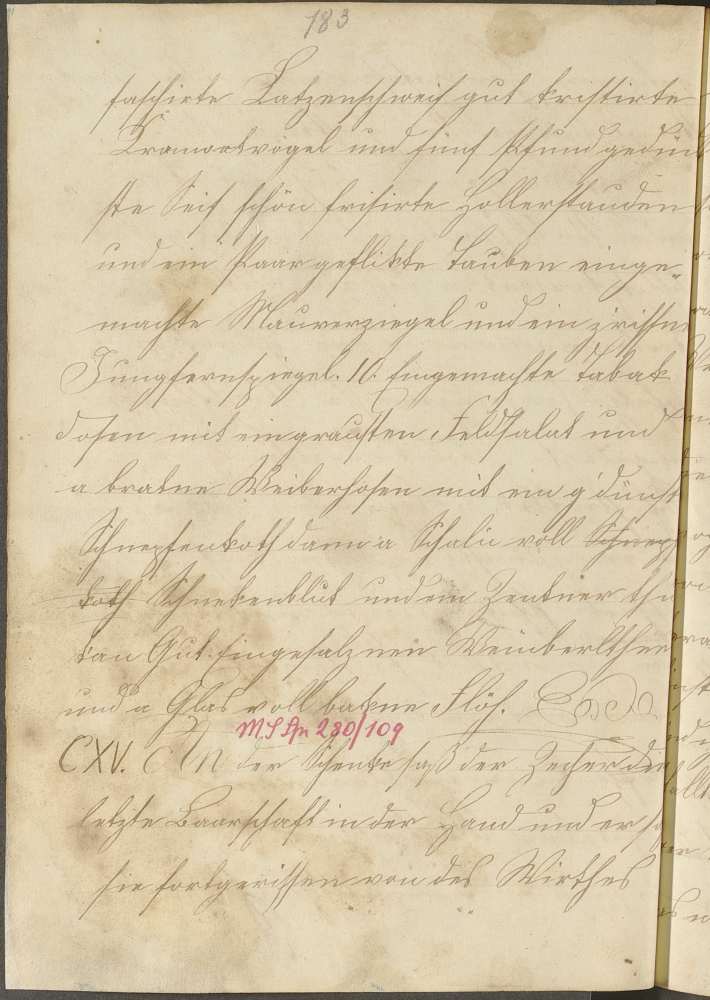 183
faschirte Katzenschweif gut kristirte
Kramontvögel und fünf Pfund gedün
ste Seif schön frisirte Hollerstauden
und ein Paar geflikte Tauben einge„
machte Maurerziegel und ein z'rissne
Jungfernspiegel. 10. Eingemachte Tabak
dosen mit ein grausten Feldsalat und
a bratne Weiberhosen mit ein g'dünst
Schnepfenkoth dann a Schalie voll Schnepf
koth Schnekenblut und ein Zentner
tan Gut. Eingesalznen Weinberlthee
und a Glas voll bakne Flöh. Ende
MS Sp 280/109
CXV. An der Schenke saß der Zecher die
letzte Baarschaft in der Hand und er
sie fortgerissen von des Wirthes